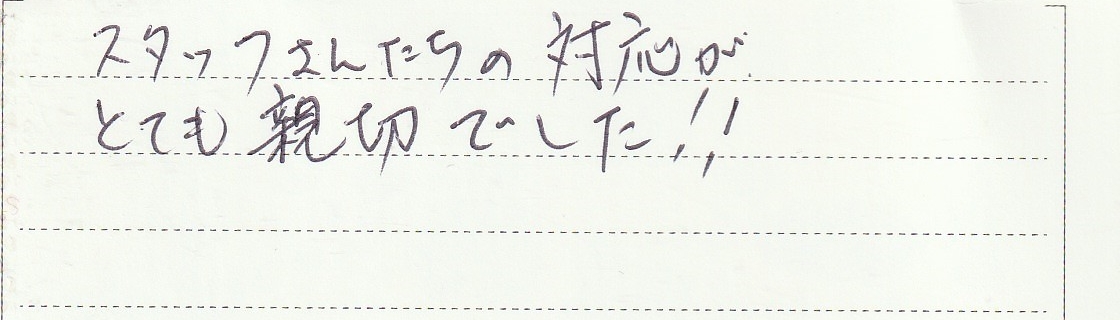 スタッフさんたちの対応が
とても親切でした!!